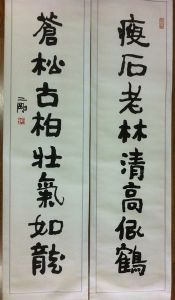 瘦石老林清高佀鶴
蒼松古柏壯氣如龍